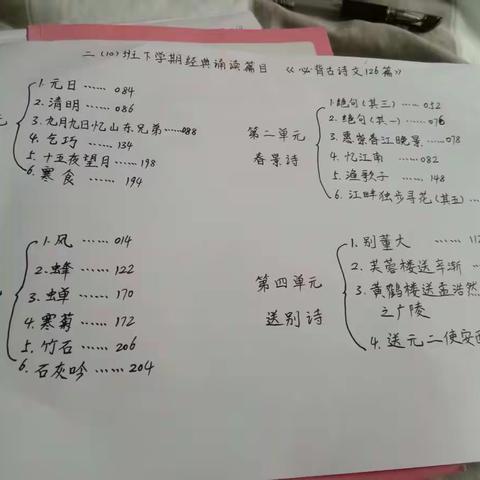 二(10)班下学期经典诵读篇目 《必背古诗文126篇》
元
1.元日……084
2.清明……086
3.九月九日忆山东兄弟……088
4.乞巧……134
5.十五夜望月……198
6.寒食……194
第二单元
春景诗
1.绝句(其三)……052
2.绝句(其一)……076
3.惠崇春江晚景……078
4.忆江南……082
5.渔歌子……148
6.江畔独步寻花(其五)…
1.风……014
2.蜂……122
3.蝉……170
4.寒菊……172
5.竹石……206
6.石灰吟……204
第四单元
送别诗
1.别董大……
2.芙蓉楼送辛渐……
3.黄鹤楼送孟浩然
之广陵
4.送元二使安西